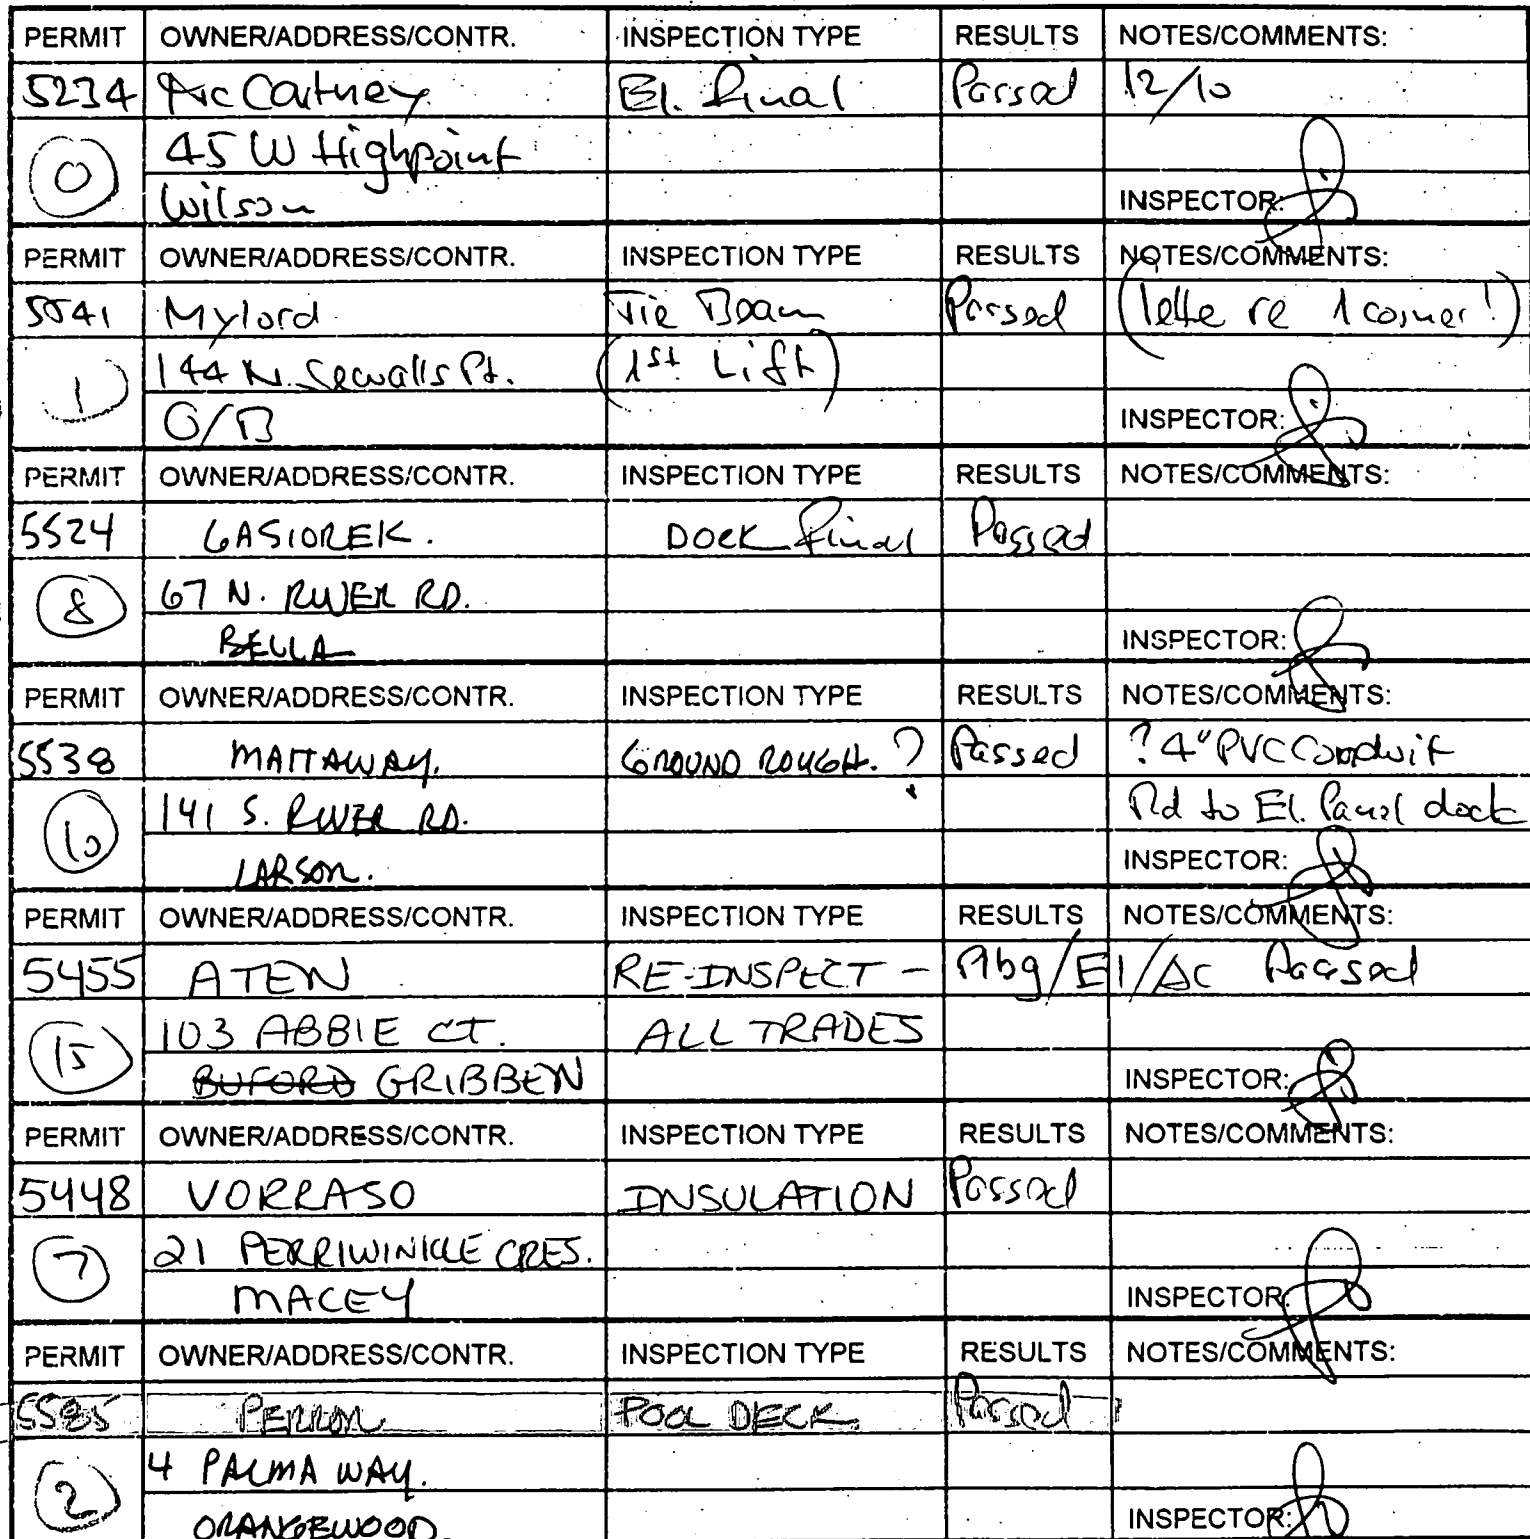 PERMIT OWNER/ADDRESS/CONTR. INSPECTION TYPE RESULTS NOTES/COMMENTS:
5234 McCartney El. final Passed 12/10
0 45 W Highpoint
Wilson INSPECTOR:
PERMIT OWNER/ADDRESS/CONTR. INSPECTION TYPE RESULTS NOTES/COMMENTS:
5541 Mylord Tie Beam Passed (lette re 1 corner!)
1 144 N. Sewalls Pt. (1st Lift)
O/B INSPECTOR:
PERMIT OWNER/ADDRESS/CONTR. INSPECTION TYPE RESULTS NOTES/COMMENTS:
5524 GASIOREK. DOCK final Passed
8 67 N. RIVER RD.
BELLA INSPECTOR:
PERMIT OWNER/ADDRESS/CONTR. INSPECTION TYPE RESULTS NOTES/COMMENTS:
5538 MATTAWAY. GROUND ROUGH. ? Passed ? 4" PVC Conduit
10 141 S. RIVER RD. Rd to El. Panel dock
LARSON. INSPECTOR:
PERMIT OWNER/ADDRESS/CONTR. INSPECTION TYPE RESULTS NOTES/COMMENTS:
5455 ATEN RE-INSPECT - Plbg/El/AC Passed
15 103 ABBIE CT. ALL TRADES
BUFORD GRIBBEN INSPECTOR:
PERMIT OWNER/ADDRESS/CONTR. INSPECTION TYPE RESULTS NOTES/COMMENTS:
5448 VORRASO INSULATION Passed
7 21 PERRIWINKLE CRES.
MACEY INSPECTOR:
PERMIT OWNER/ADDRESS/CONTR. INSPECTION TYPE RESULTS NOTES/COMMENTS:
5585 PERRON POOL DECK. Passed
2 4 PALMA WAY.
ORANGEWOOD. INSPECTOR: